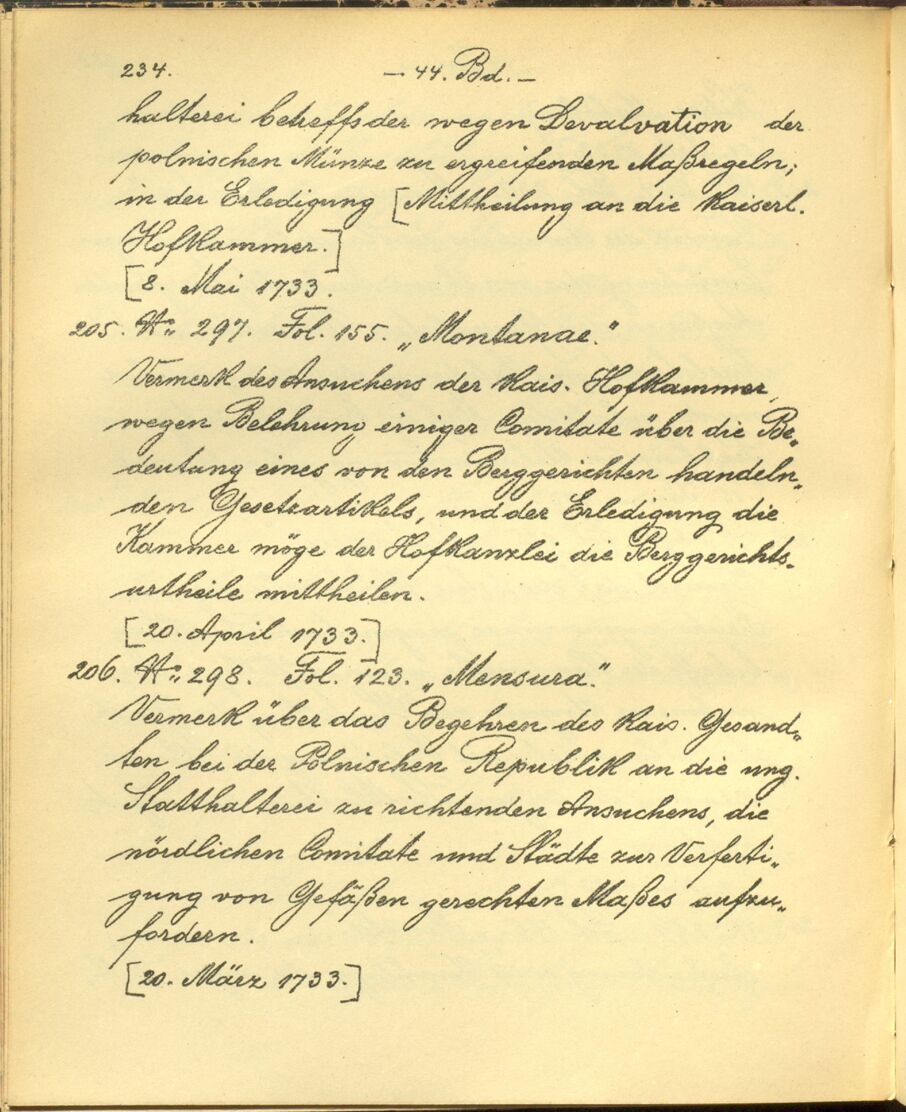 234. — 44. Bd. —
halterei betreffs der wegen Devalvation der
polnischen Münze zu ergreifenden Maßregeln;
in der Erledigung [Mittheilung an die Kaiserl.
Hofkammer.]
[8. Mai 1733.
205. No: 297. Fol. 155. „Montanae.“
Vermerk des Ansuchens der Kais. Hofkammer,
wegen Belehrung einiger Comitate über die Be„
deutung eines von den Berggerichten handeln„
den Gesetzartikels, und der Erledigung die
Kammer möge der Hofkanzlei die Berggerichts„
urtheile mittheilen.
[20. April 1733.]
206. No: 298. Fol. 123. „Mensura.“
Vermerk über das Begehren des Kais. Gesand„
ten bei der Polnischen Republik an die ung.
Statthalterei zu richtenden Ansuchens, die
nördlichen Comitate und Städte zur Verferti„
gung von Gefäßen gerechten Maßes aufzu„
fordern.
[20. März 1733.]